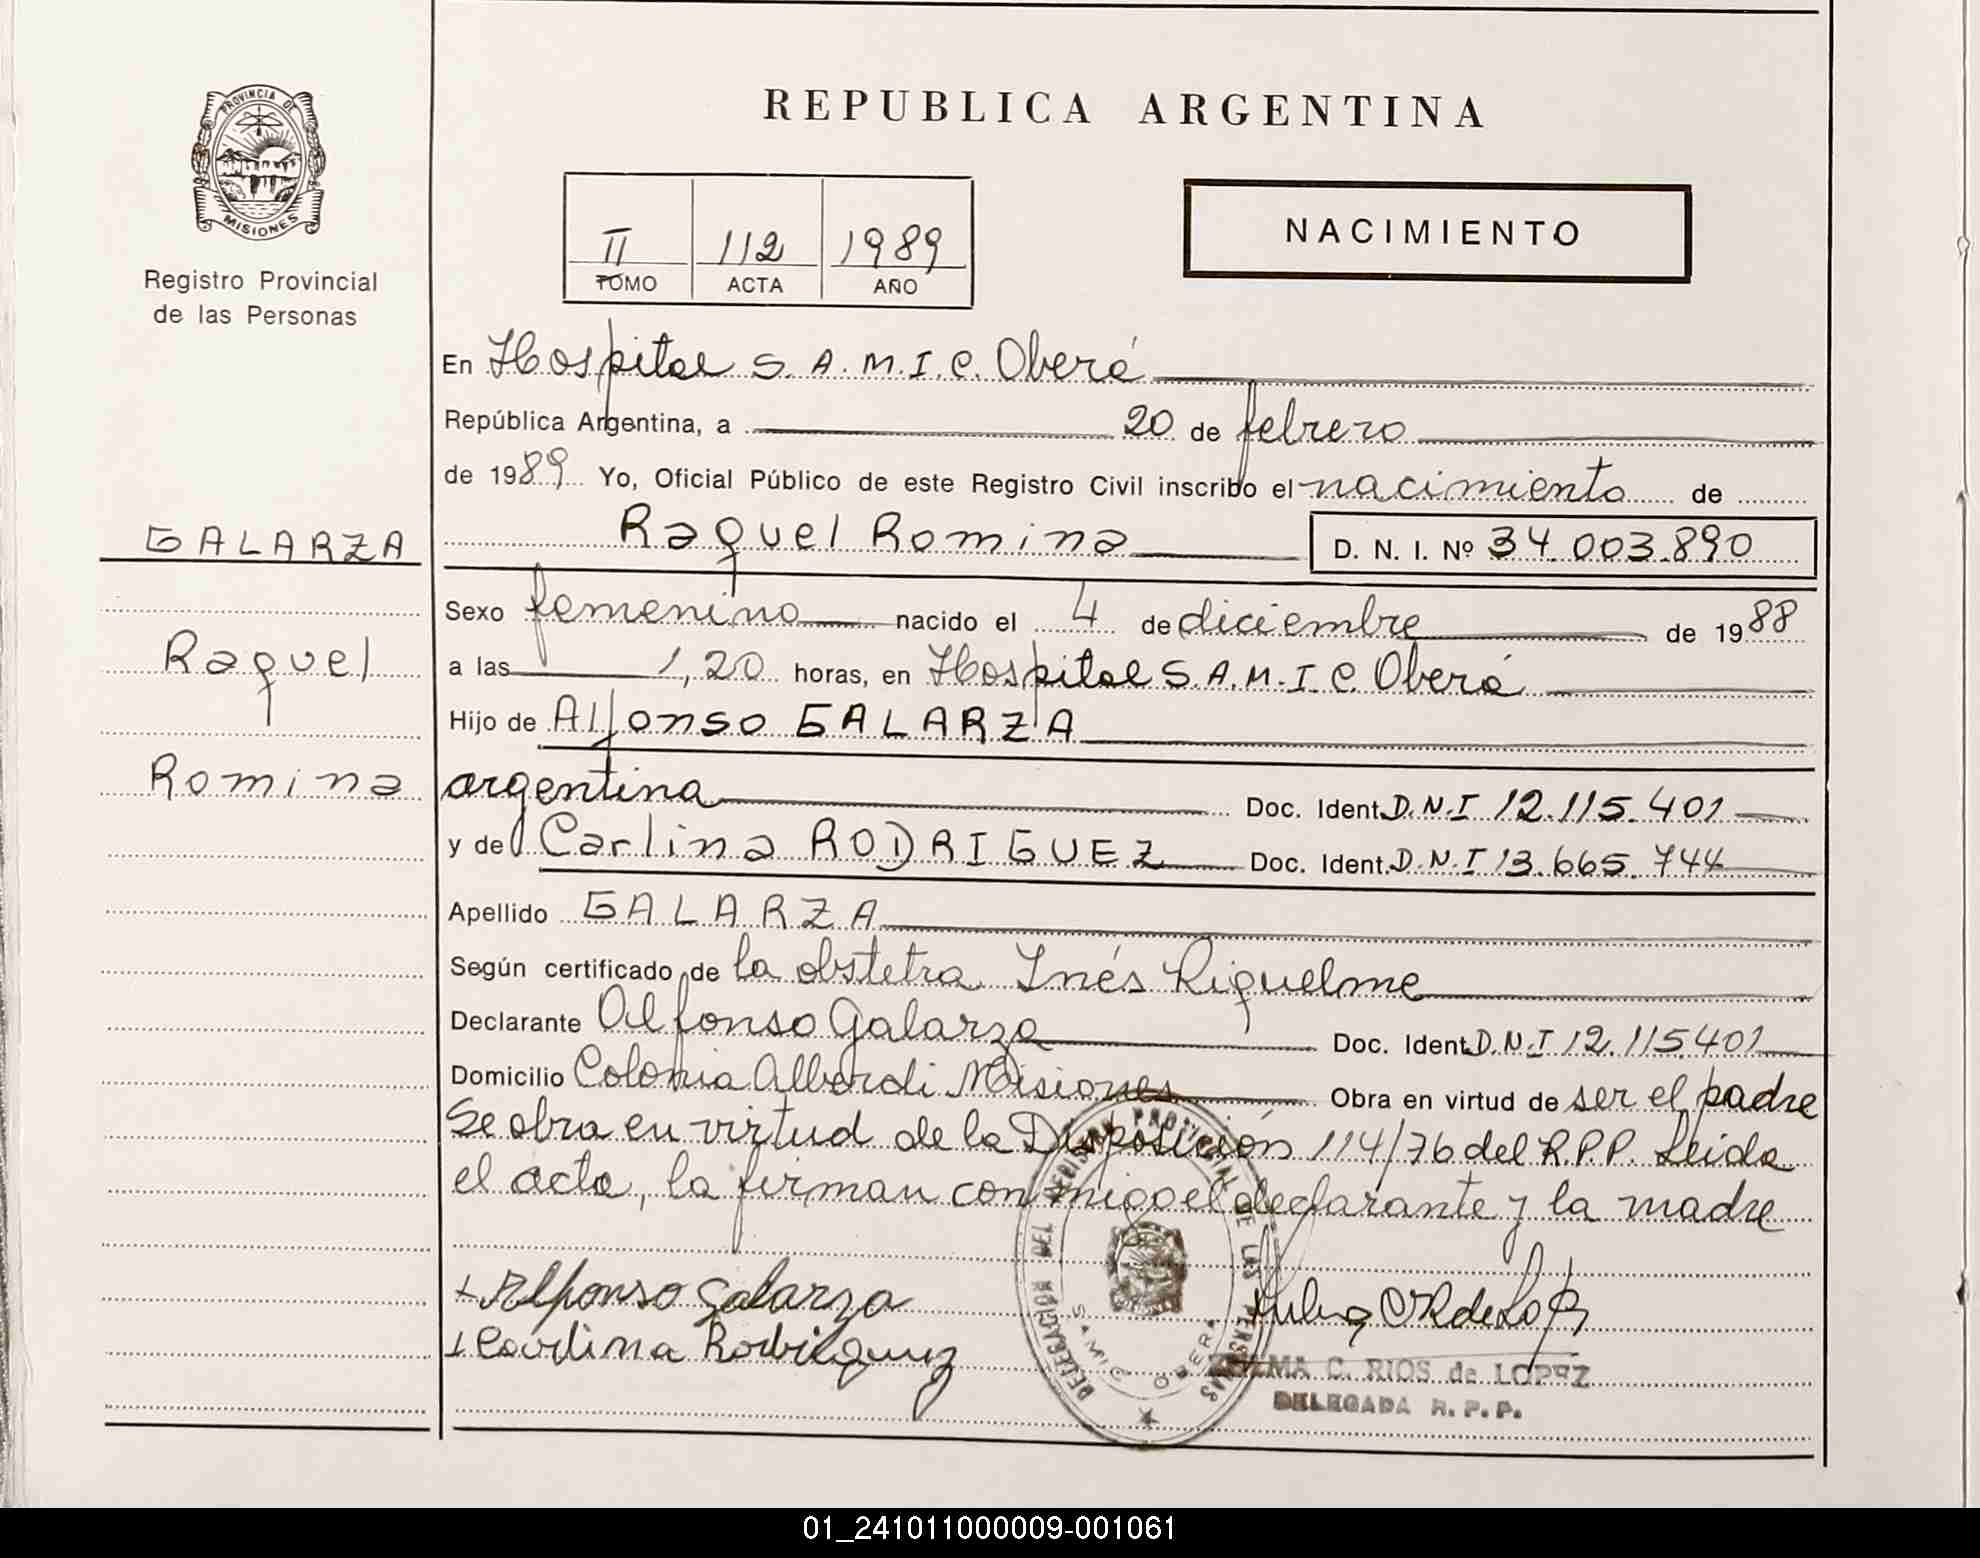 REPUBLICA ARGENTINA
PROVINCIA DE
MISIONES
Registro Provincial
de las Personas
II 112 1989
TOMO ACTA AÑO
NACIMIENTO
En Hospital S.A.M.I.C. Oberá
República Argentina, a 20 de febrero
de 1989 Yo, Oficial Público de este Registro Civil inscribo el nacimiento de
GALARZA
Raquel Romina D. N. I. Nº 34.003.890
Sexo femenino nacido el 4 de diciembre de 1988
Raquel
a las 1,20 horas, en Hospital S.A.M.I.C. Oberá
Hijo de Alfonso GALARZA
Romina
argentina Doc. Ident. D.N.I 12.115.401
y de Carlina RODRIGUEZ Doc. Ident. D.N.I 13.665.744
Apellido GALARZA
Según certificado de la obstetra Inés Riquelme
Declarante Alfonso Galarza Doc. Ident. D.N.I 12.115.401
Domicilio Colonia Alberdi Misiones Obra en virtud de ser el padre
Se obra en virtud de la Disposición 114/76 del R.P.P. Leida
el acta, la firman conmigo el declarante y la madre
+ Alfonso Galarza
+ Carlina Rodriguez
DELEGACION DEL REGISTRO PROVINCIAL DE LAS PERSONAS
SAMIC OBERA
C. RIOS de LOPEZ
DELEGADA R. P. P.
01_241011000009-001061